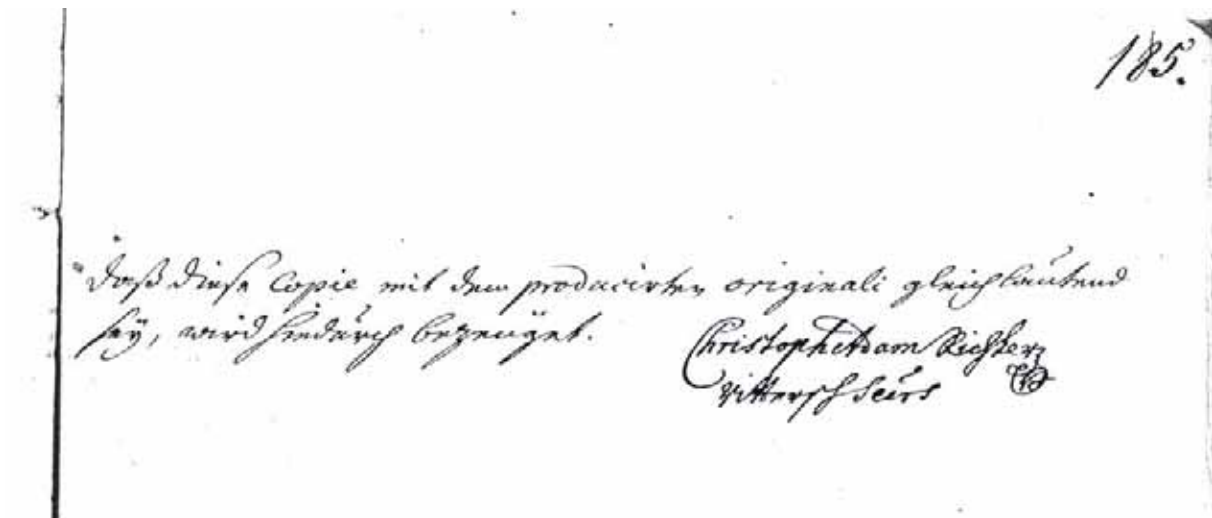 185.
Daß diese Copie mit dem producirten originali gleichlautend
sey, wird hiedurch bezeuget.
Christoph Adam Richter
Rittersch Secrs